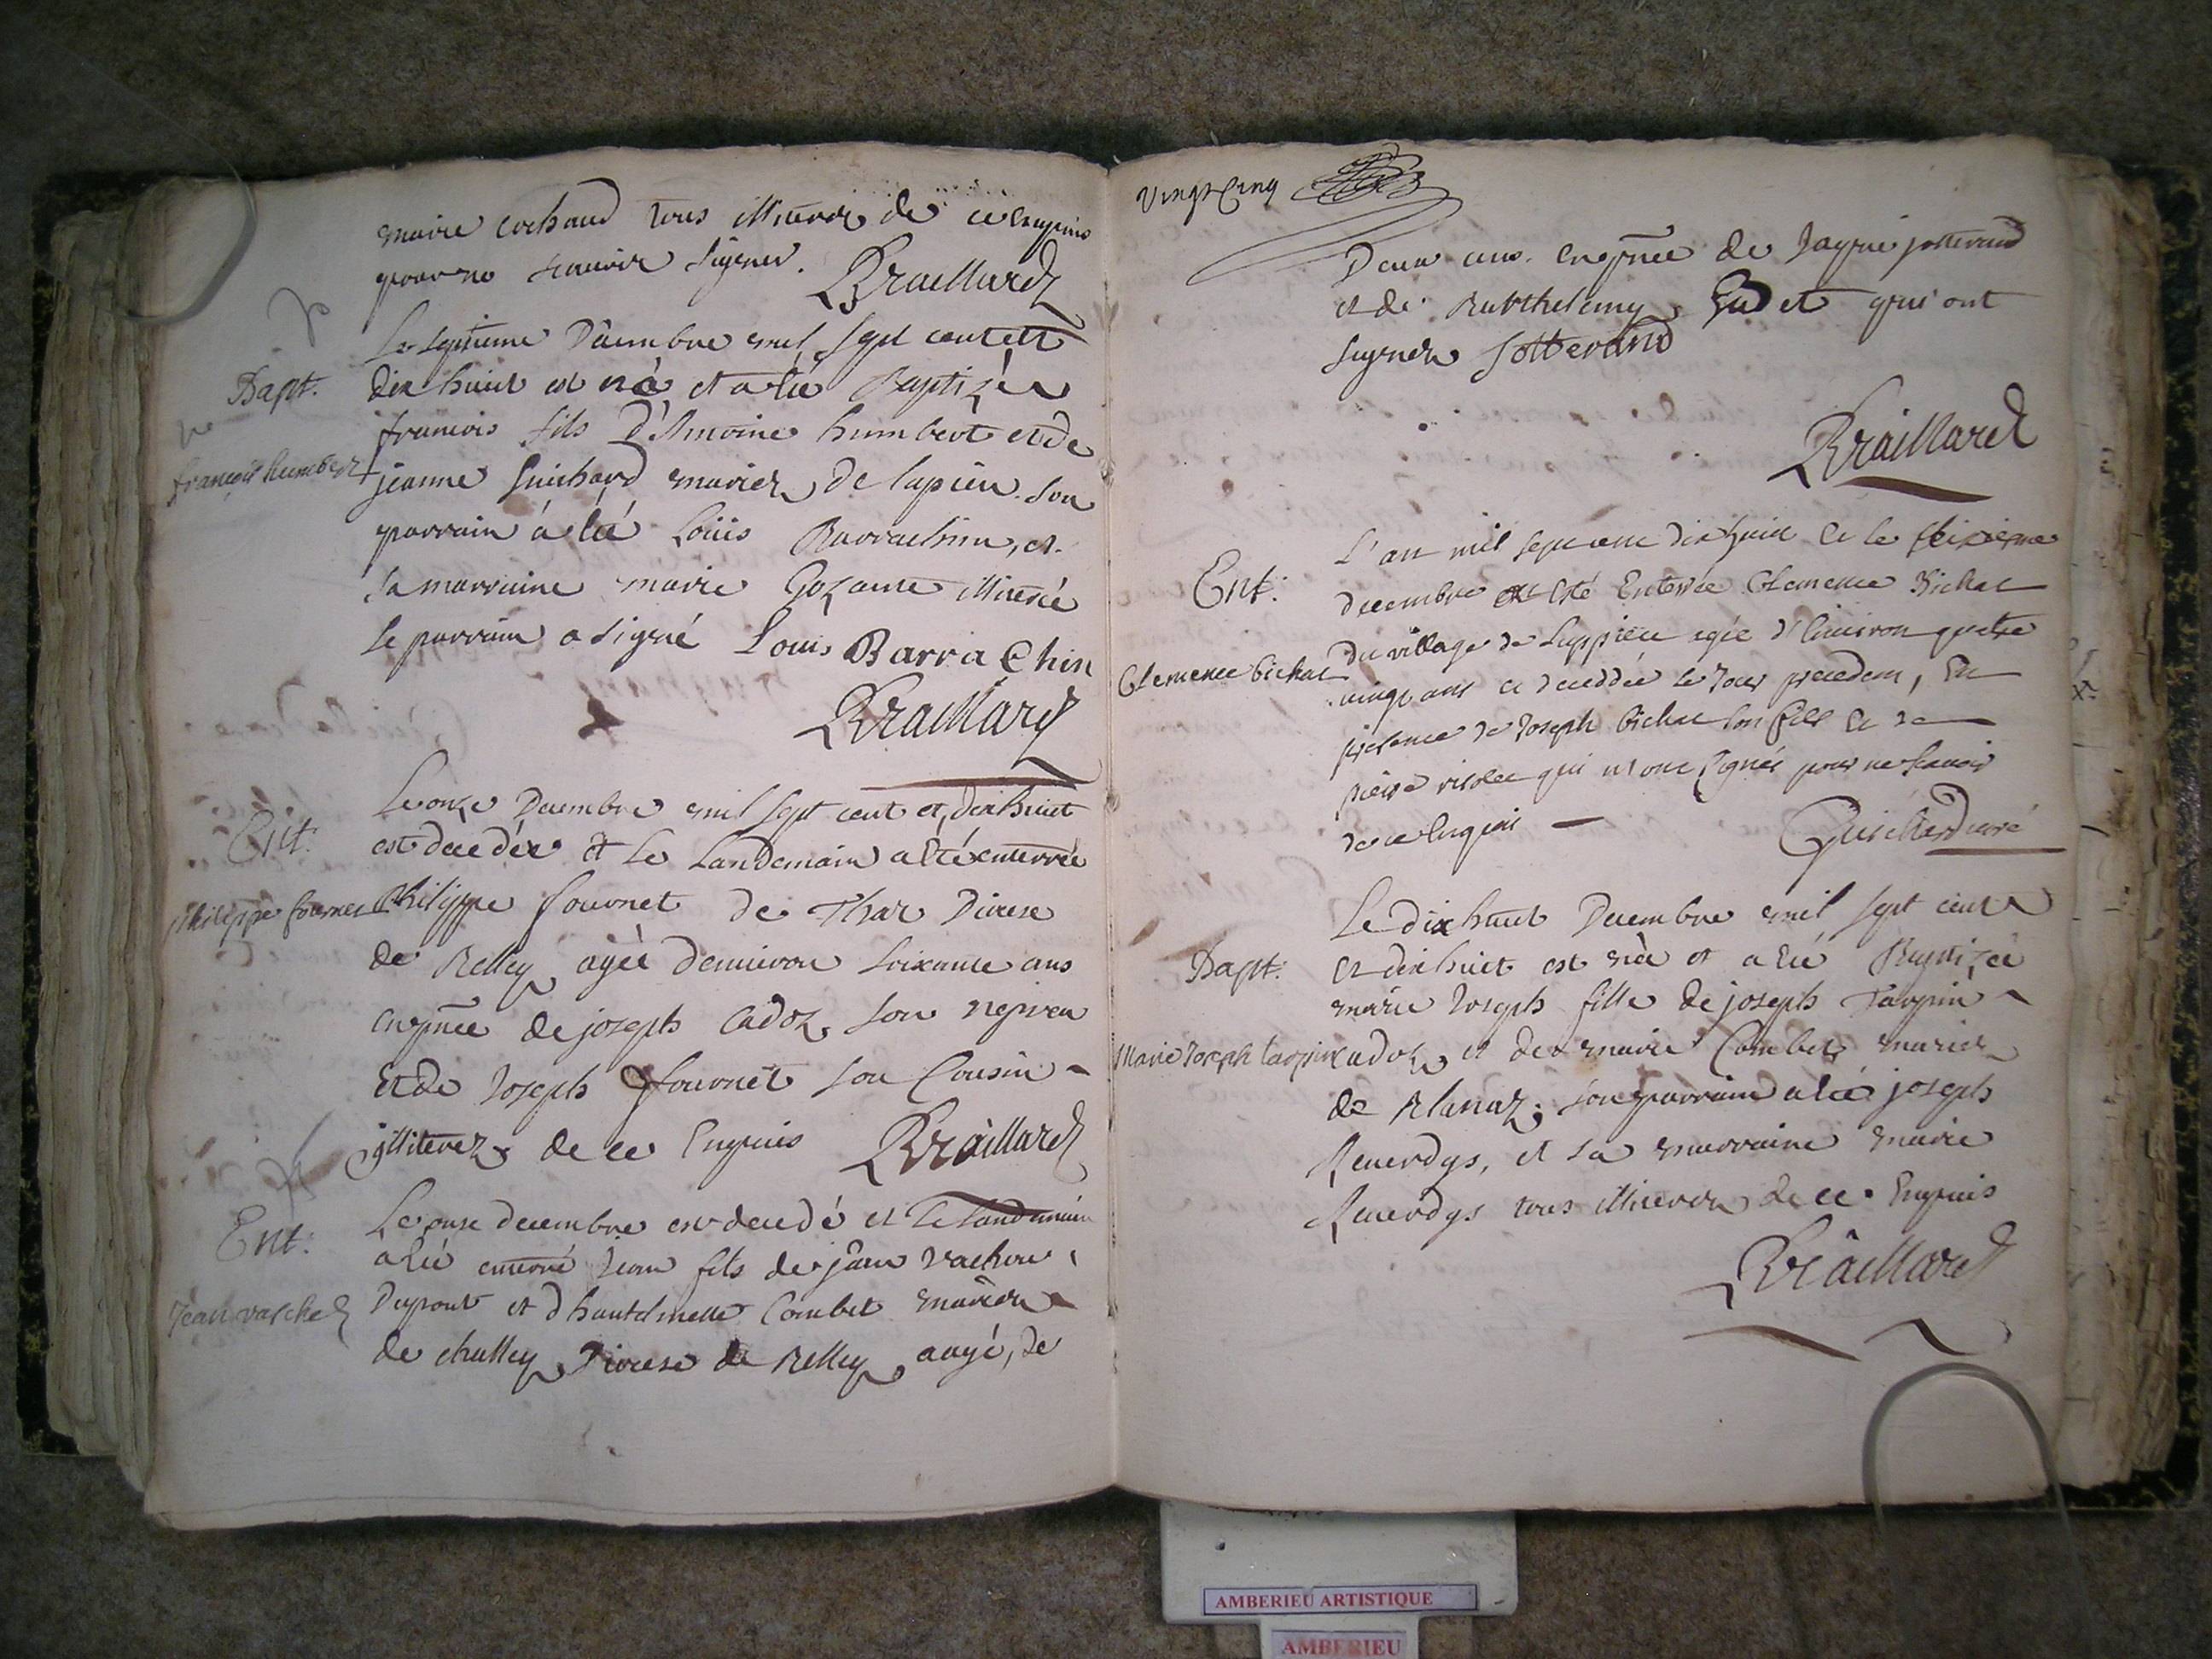 marie cochaud tous illiterez de ce enquins
pour ne scauoir signer. Braillard
Le septieme Decembre mil sept cent et
Bapt. dix huict est né et a eté Baptizé
francois fils D'Antoine humbert et de
françois humbert jeanne Guichard mariez de lapieu. Son
parrain a eté Loüis Barrachin, et
sa marraine marie illiterée
le parrain a signé Louis Barrachin
Braillard
Le onze Decembre mil sept cent et dix huict
Ent. est decedée et le Landemain a eté enterrée
philippe fournet Philippe fournet de Thar Diocese
de Belley agée d'enuiron soixante ans
en pñce de joseph Cadoz son nepveu
Et de Joseph fournet son Cousin
illiterez de ce Enquis Braillard
Ent. Le onze decembre est decedé et le landemain
a eté enterré Jean fils de jean vachon
Dupont et d'hantelmette Combet mariez
de challey Diocese de Belley aagé, de
Vingt Cinq
Deux ans. en pñce de Jayme jotterand
et de Barthelemy Gudet qui ont
signez Jotterand
Braillard
L'an mil sept cent dix huict et le seizieme
Ent. decembre a esté Enterrée Clemence Bichat
du village de Luppieu agée d'enuiron quatre
Clemence bichat vingt ans et deceddée le Jour precedent, En
presence de Joseph bichat son fils et de
pierre violet qui n'ont signés pour ne scauoir
de ce enquis Guichard curé
Le dix huict Decembre mil sept cent
Bapt. et dix huict est née et a eté Baptizée
marie Joseph fille de joseph Tarpin
Marie Joseph tarpin cadoz et de marie Combet mariez
de Blanaz; son parrain a eté joseph
Reverdys, et sa marraine marie
Reverdys tous illiterez de ce Enquis
Braillard
AMBERIEU ARTISTIQUE
AMBERIEU